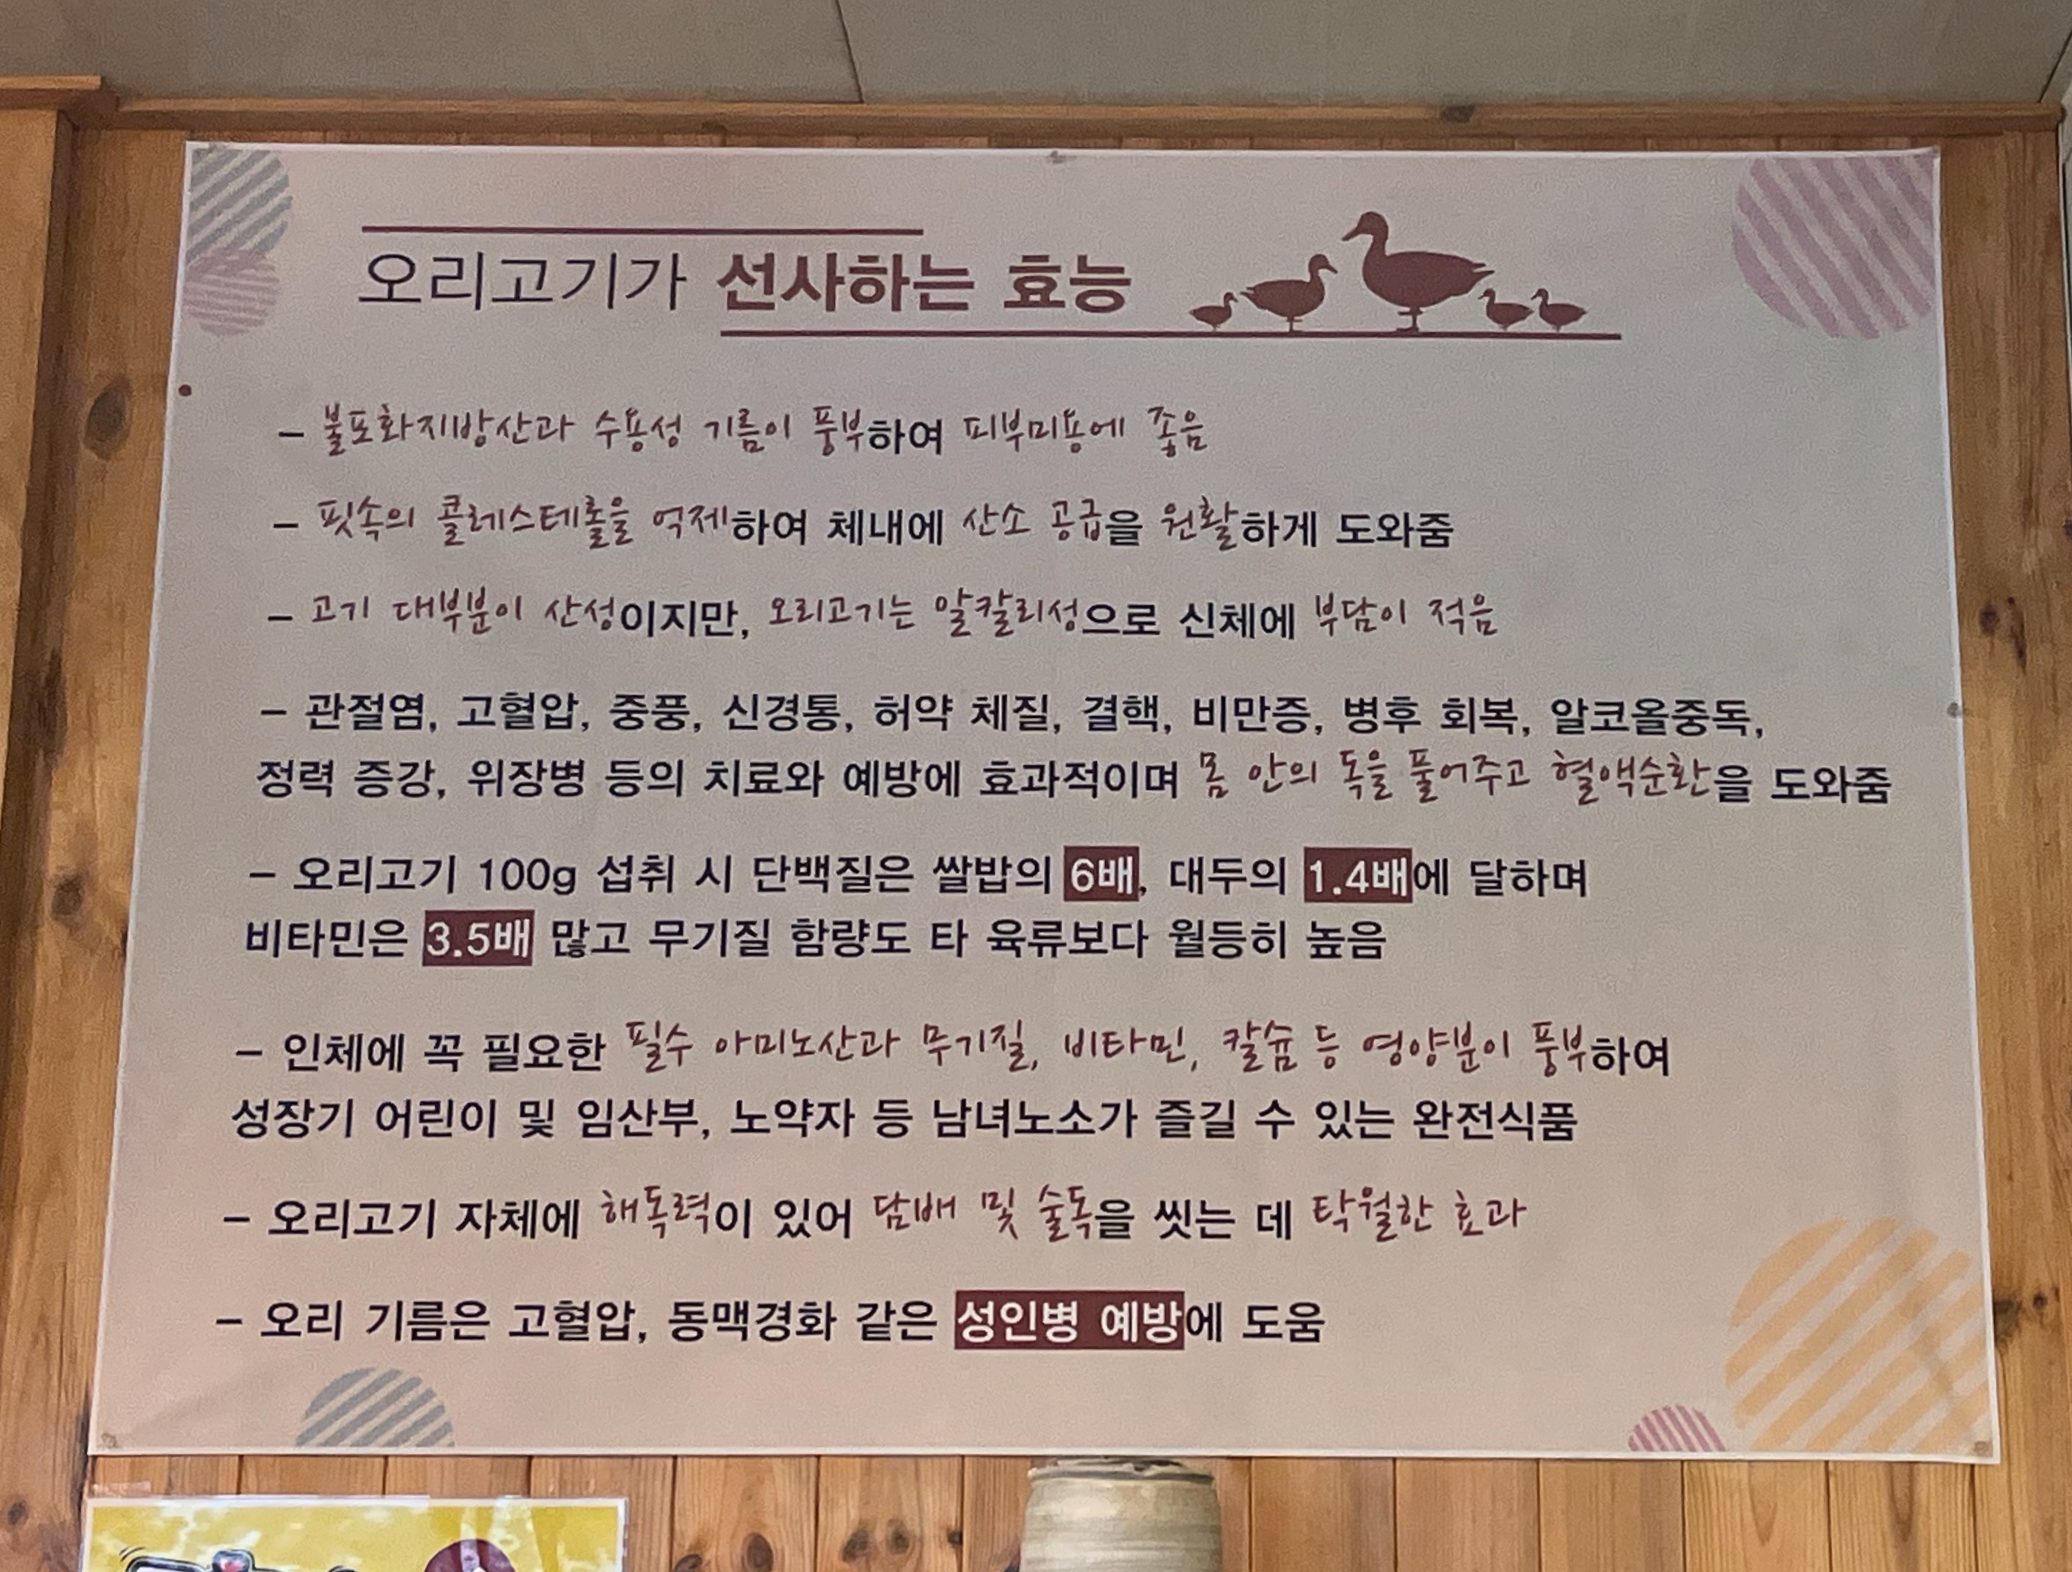 오리고기가 선사하는 효능
- 불포화지방산과 수용성 기름이 풍부하여 피부미용에 좋음
- 핏속의 콜레스테롤을 억제하여 체내에 산소 공급을 원활하게 도와줌
- 고기 대부분이 산성이지만, 오리고기는 알칼리성으로 신체에 부담이 적음
- 관절염, 고혈압, 중풍, 신경통, 허약 체질, 결핵, 비만증, 병후 회복, 알코올중독,
정력 증강, 위장병 등의 치료와 예방에 효과적이며 몸 안의 독을 풀어주고 혈액순환을 도와줌
- 오리고기 100g 섭취 시 단백질은 쌀밥의 6배, 대두의 1.4배에 달하며
비타민은 3.5배 많고 무기질 함량도 타 육류보다 월등히 높음
- 인체에 꼭 필요한 필수 아미노산과 무기질, 비타민, 칼슘 등 영양분이 풍부하여
성장기 어린이 및 임산부, 노약자 등 남녀노소가 즐길 수 있는 완전식품
- 오리고기 자체에 해독력이 있어 담배 및 술독을 씻는 데 탁월한 효과
- 오리 기름은 고혈압, 동맥경화 같은 성인병 예방에 도움